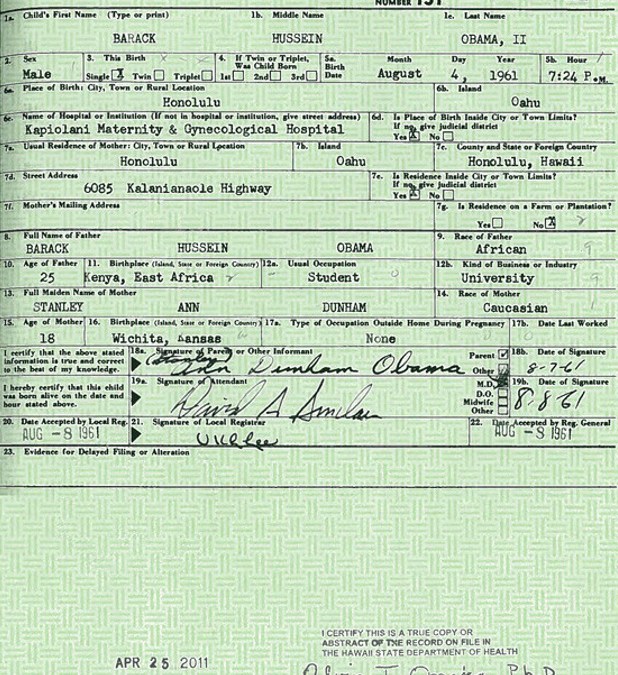 NUMBER 151
1a. Child's First Name (Type or print) 1b. Middle Name 1c. Last Name
BARACK HUSSEIN OBAMA, II
2. Sex 3. This Birth 4. If Twin or Triplet, Was Child Born 5a. Birth Date Month Day Year 5b. Hour
Male Single X Twin Triplet 1st 2nd 3rd August 4, 1961 7:24 P.M.
6a. Place of Birth: City, Town or Rural Location 6b. Island
Honolulu Oahu
6c. Name of Hospital or Institution (If not in hospital or institution, give street address) 6d. Is Place of Birth Inside City or Town Limits?
If no, give judicial district
Kapiolani Maternity & Gynecological Hospital Yes X No
7a. Usual Residence of Mother: City, Town or Rural Location 7b. Island 7c. County and State or Foreign Country
Honolulu Oahu Honolulu, Hawaii
7d. Street Address 7e. Is Residence Inside City or Town Limits?
If no, give judicial district
6085 Kalanianaole Highway Yes X No
7f. Mother's Mailing Address 7g. Is Residence on a Farm or Plantation?
Yes No X
8. Full Name of Father 9. Race of Father
BARACK HUSSEIN OBAMA African
10. Age of Father 11. Birthplace (Island, State or Foreign Country) 12a. Usual Occupation 12b. Kind of Business or Industry
25 Kenya, East Africa Student University
13. Full Maiden Name of Mother 14. Race of Mother
STANLEY ANN DUNHAM Caucasian
15. Age of Mother 16. Birthplace (Island, State or Foreign Country) 17a. Type of Occupation Outside Home During Pregnancy 17b. Date Last Worked
18 Wichita, Kansas None
I certify that the above stated information is true and correct to the best of my knowledge. 18a. Signature of Parent or Other Informant Parent Other 18b. Date of Signature
(Stanley) Ann Dunham Obama 8-7-61
I hereby certify that this child was born alive on the date and hour stated above. 19a. Signature of Attendant M.D. D.O. Midwife Other 19b. Date of Signature
David A Sinclair 8-8-61
20. Date Accepted by Local Reg. 21. Signature of Local Registrar 22. Date Accepted by Reg. General
AUG -8 1961 U K L Lee AUG -8 1961
23. Evidence for Delayed Filing or Alteration
I CERTIFY THIS IS A TRUE COPY OR
ABSTRACT OF THE RECORD ON FILE IN
THE HAWAII STATE DEPARTMENT OF HEALTH
APR 25 2011
Ph.D.